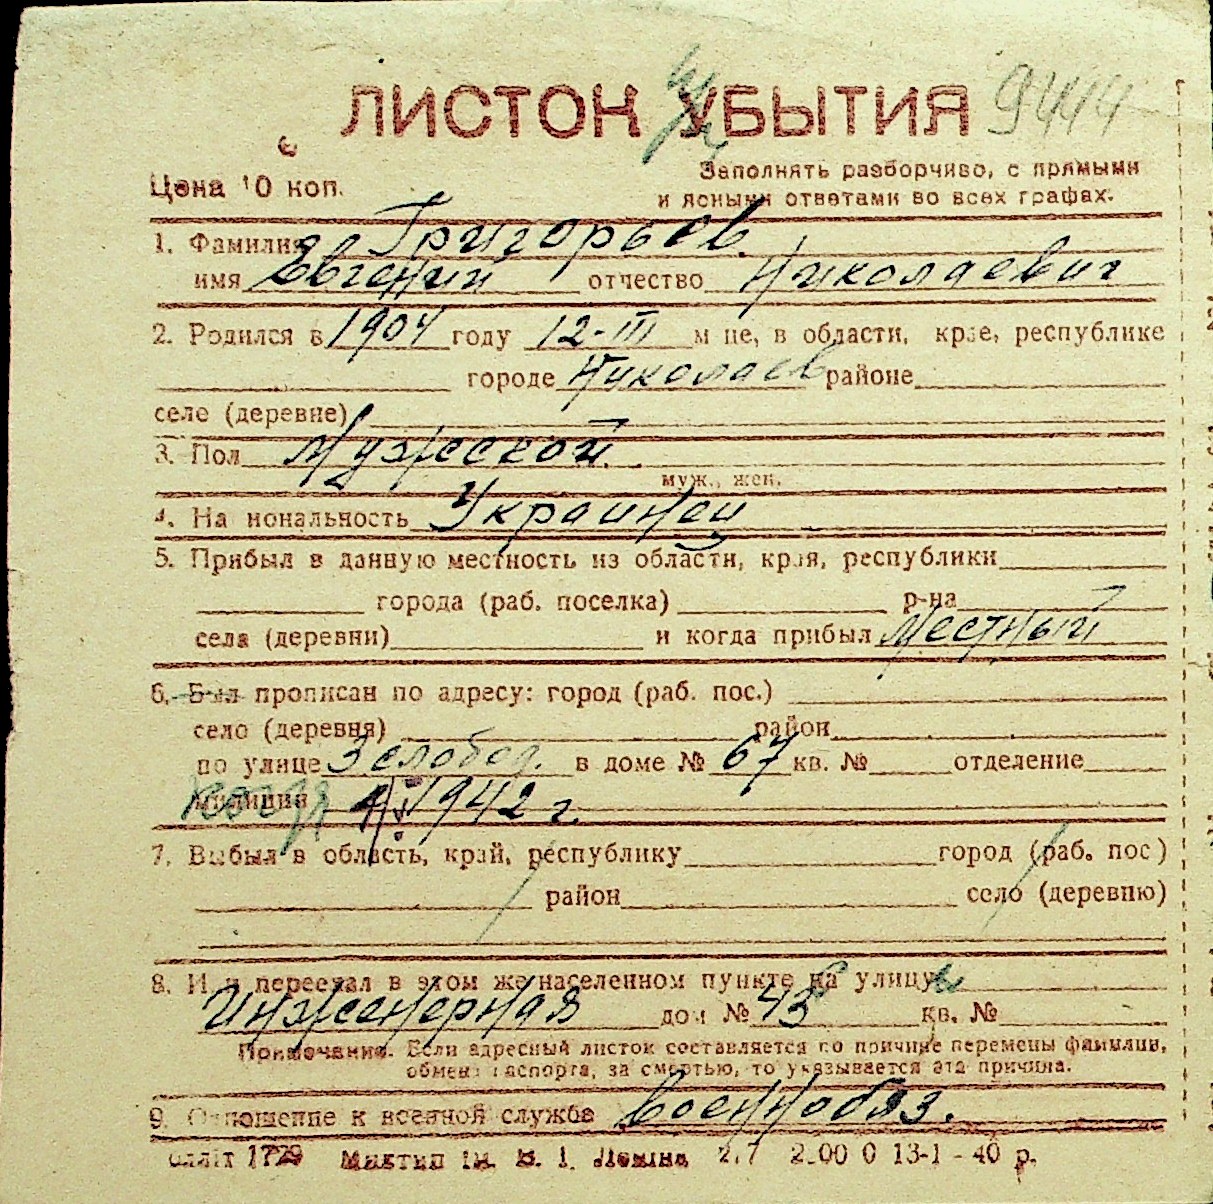 ЛИСТОК УБЫТИЯ 9444
Цена 10 коп.
Заполнять разборчиво, с прямыми
и ясными ответами во всех графах.
1. Фамилия Григорьев
имя Евгений отчество Николаевич
2. Родился в 1904 году 12-III м це, в области, крае, республике
городе Николаев районе
село (деревне)
3. Пол Мужской
муж., жен.
4. На иональность Украинец
5. Прибыл в данную местность из области, края, республики
города (раб. поселка) р-на
села (деревни) и когда прибыл Местный
6. Был прописан по адресу: город (раб. пос.)
село (деревня) район
по улице 3 слобод. в доме № 67 кв. № отделение
милиции 1942 г.
7. Выбыл в область, край, республику город (раб. пос)
район село (деревню)
8. И и переехал в этом же населенном пункте на улицу
Инженерная дом № 43 кв. №
Примечание. Если адресный листок составляется по причине перемены фамилии,
обмена паспорта, за смертью, то указывается эта причина.
9. Отношение к военной службе военнообяз.
1729 им. В. І. Леніна 2.00 0 13-1-40 р.